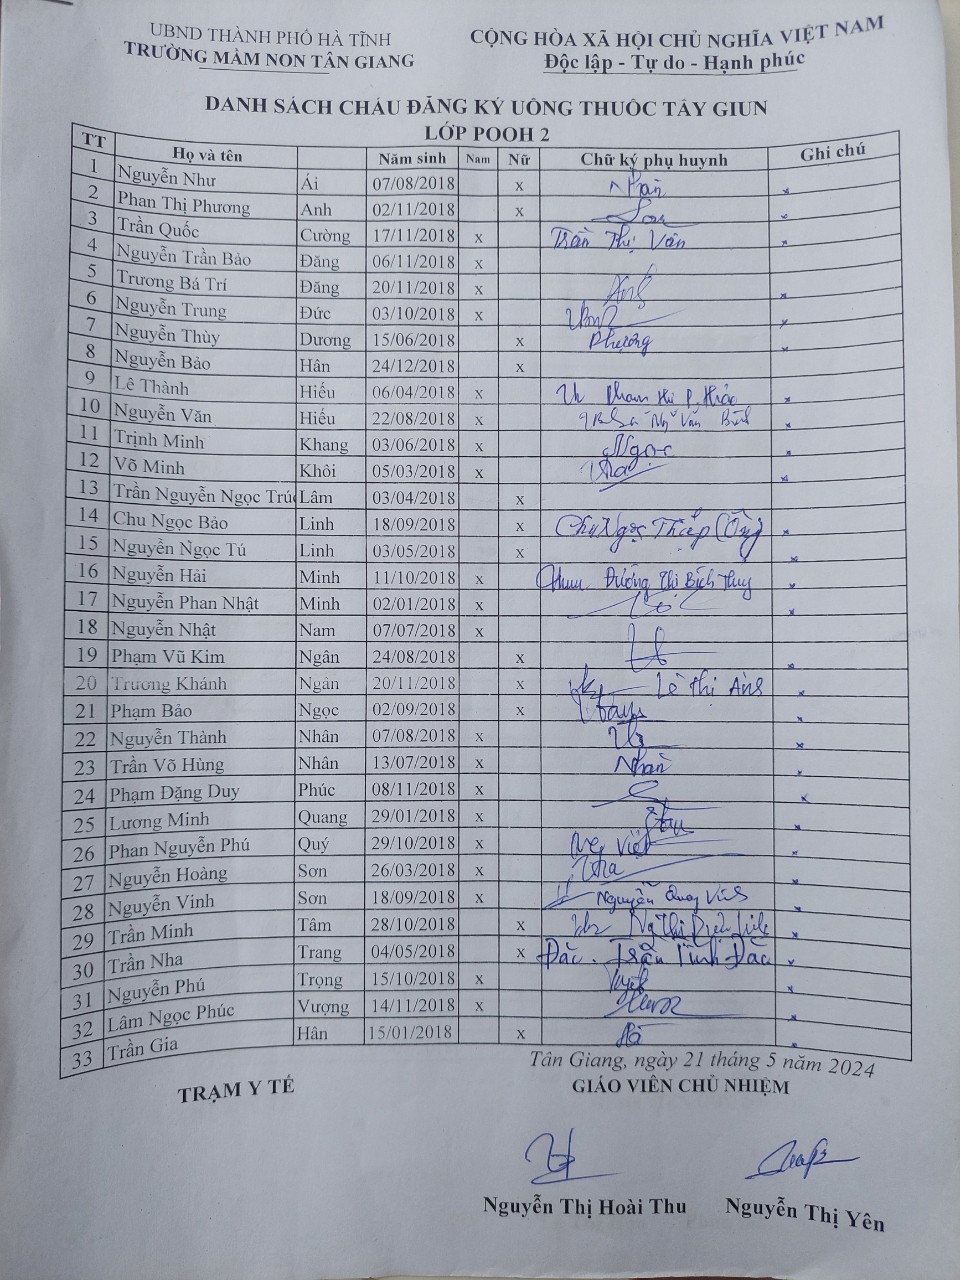 UBND THÀNH PHỐ HÀ TĨNH
TRƯỜNG MẦM NON TÂN GIANG
CỘNG HÒA XÃ HỘI CHỦ NGHĨA VIỆT NAM
Độc lập - Tự do - Hạnh phúc
DANH SÁCH CHÁU ĐĂNG KÝ UỐNG THUỐC TẨY GIUN
LỚP POOH 2
TT Họ và tên Năm sinh Nam Nữ Chữ ký phụ huynh Ghi chú
1 Nguyễn Như Ái 07/08/2018 x Nhàn x
2 Phan Thị Phương Anh 02/11/2018 x x
3 Trần Quốc Cường 17/11/2018 x Trần Thị Vân x
4 Nguyễn Trần Bảo Đăng 06/11/2018 x
5 Trương Bá Trí Đăng 20/11/2018 x x
6 Nguyễn Trung Đức 03/10/2018 x x
7 Nguyễn Thùy Dương 15/06/2018 x Phượng x
8 Nguyễn Bảo Hân 24/12/2018 x
9 Lê Thành Hiếu 06/04/2018 x x
10 Nguyễn Văn Hiếu 22/08/2018 x x
11 Trịnh Minh Khang 03/06/2018 x Ngọc x
12 Võ Minh Khôi 05/03/2018 x x
13 Trần Nguyễn Ngọc Trúc Lâm 03/04/2018 x
14 Chu Ngọc Bảo Linh 18/09/2018 x Chu Ngọc Thắp (Ông) x
15 Nguyễn Ngọc Tú Linh 03/05/2018 x x
16 Nguyễn Hải Minh 11/10/2018 x Dương Thị Bích Thuy x
17 Nguyễn Phan Nhật Minh 02/01/2018 x x
18 Nguyễn Nhật Nam 07/07/2018 x
19 Phạm Vũ Kim Ngân 24/08/2018 x x
20 Trương Khánh Ngân 20/11/2018 x Lê Thị Ans x
21 Phạm Bảo Ngọc 02/09/2018 x x
22 Nguyễn Thành Nhân 07/08/2018 x x
23 Trần Võ Hùng Nhân 13/07/2018 x Nhàn x
24 Phạm Đặng Duy Phúc 08/11/2018 x x
25 Lương Minh Quang 29/01/2018 x x
26 Phan Nguyễn Phú Quý 29/10/2018 x x
27 Nguyễn Hoàng Sơn 26/03/2018 x x
28 Nguyễn Vinh Sơn 18/09/2018 x Nguyễn Quang Vinh x
29 Trần Minh Tâm 28/10/2018 x x
30 Trần Nha Trang 04/05/2018 x Đắc. Trần Tĩnh Đắc x
31 Nguyễn Phú Trọng 15/10/2018 x x
32 Lâm Ngọc Phúc Vượng 14/11/2018 x x
33 Trần Gia Hân 15/01/2018 x Hà x
Tân Giang, ngày 21 tháng 5 năm 2024
TRẠM Y TẾ
GIÁO VIÊN CHỦ NHIỆM
Nguyễn Thị Hoài Thu Nguyễn Thị Yên